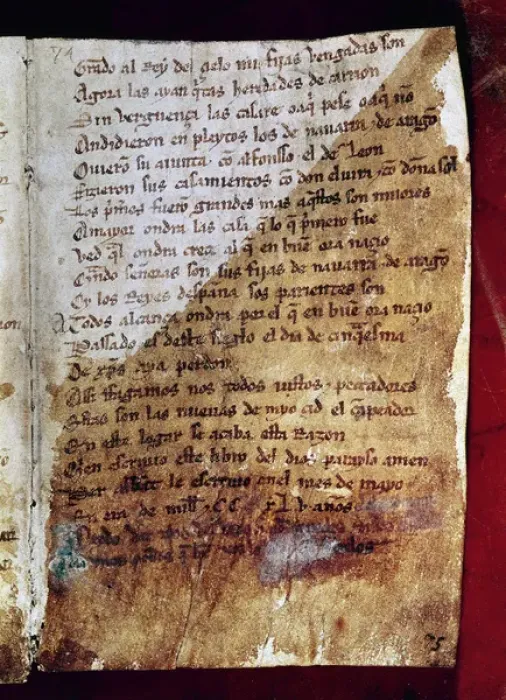 74
Grado al Rey del çielo mis fijas vengadas son
Agora las ayan q̃tas heredades de carrion
Sin verguença las casare o aq̃ pese o aq̃ nõ
Andidieron en pleytos los de nauarra ⁊ de aragõ
Ouierõ su aiunta cõ alfonsso el de Leon
Fizieron sus casamientos cõ don eluira ⁊ cõ doña sol
Los p̃meros fuerõ grandes mas aq̃stos son miiores
A mayor ondra las casa q̃ lo q̃ p̃mero fue
Ved q̃l ondra creçe al q̃ en buẽ ora naçio
Quãdo señoras son sus fijas de nauarra ⁊ de aragõ
Oy los Reyes despaña sos parientes son
A todos alcança ondra por el q̃ en buẽ ora naçio
Passado es deste sieglo el dia de cinq̃esma
De xp̃s aya perdon
Assi ffagamos nos todos iustos ⁊ peccadores
Estas son las nueuas de myo çid el cãpeador
En este logar se acaba esta Razon
Quien escriuio este libro del dios parayso amen
Per abbat le escriuio enel mes de mayo
En era de mill ⁊ CC xLv años
75